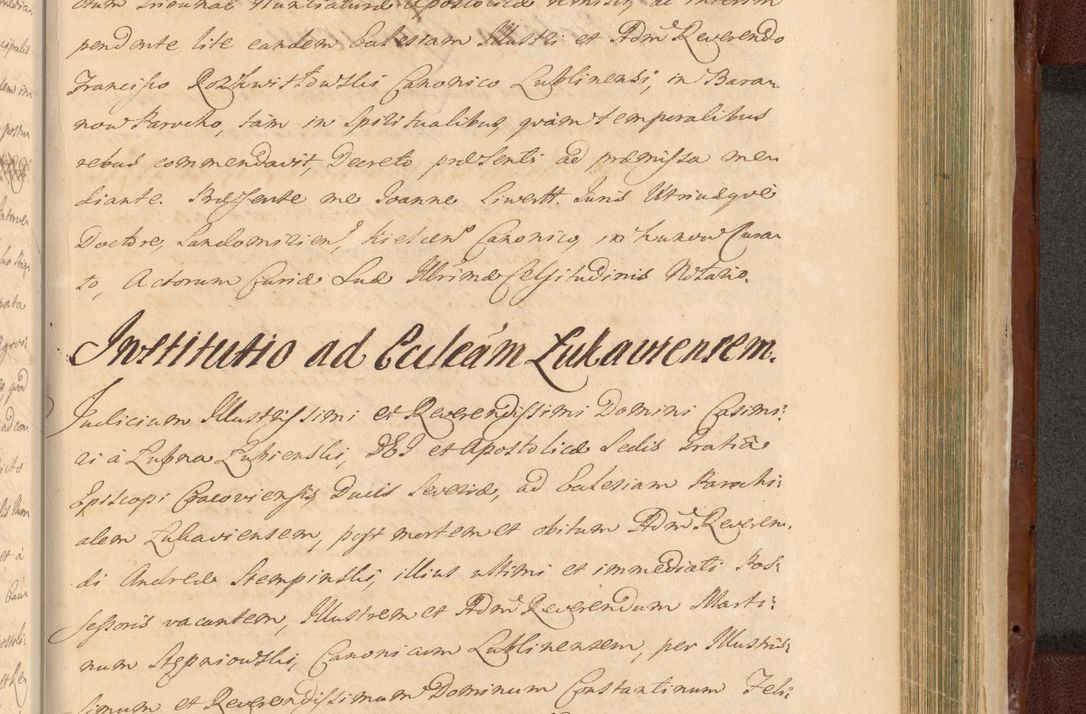 pendente lite eandem Ecclesiam Illustri et Admd Reverendo
Francisco Rozkwitowski Canonico Lublinensi, in Bara-
now Parocho, tam in Spiritualibus, quam temporalibus
rebus commendavit, Decreto præsenti ad præmissa me-
diante. Præsente me Joanne Liwertt. Juris Utriusque
Doctore, Sandomirien, Kielcen Canonico, in Cura-
to, Actorum Curiæ Suæ Illrimæ Celsitudinis Notario.
Institutio ad Eccleam Łukaviensem.
Judicium Illustrissimi et Reverendissimi Domini Casimi:
ri à Łubna Łubienski, DEI et Apostolicæ Sedis Gratiâ
Episcopi Cracoviensis, Ducis Severiæ, ad Ecclesiam Parochi:
alem Łukaviensem, post mortem et obitum Admd Reveren:
di Andreæ Stempinski, illius ultimi et immediati Pos:
sessoris vacantem, Illustrem et Admd Reverendum Marti:
num Stępniowski, Canonicum Lublinensem, per Illustris:
simum et Reverendissimum Dominum Constantinum Feli: